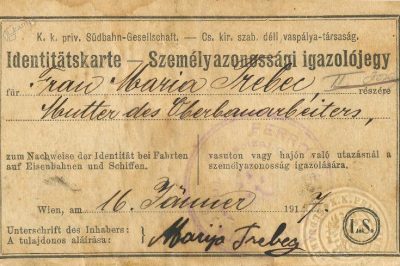 K. k. priv. Südbahn-Gesellschaft. — Cs. kir. szab. déli vaspálya-társaság.
Identitätskarte — Személyazonossági igazolójegy
für Frau Maria Trebec, részére
Mutter des Oberbauarbeiters,
zum Nachweise der Identität bei Fahrten auf Eisenbahnen und Schiffen.
vasuton vagy hajón való utazásnál a személyazonosság igazolására.
Wien, am 16. Jänner 1917.
Unterschrift des Inhabers:
A tulajdonos aláírása:
Marija Trebeg
L.S.